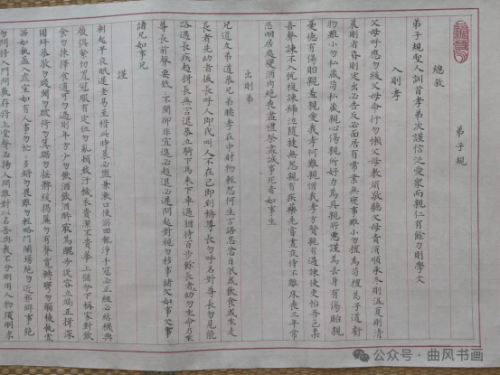 弟子規
總敘
弟子規聖人訓首孝弟次謹信泛愛眾而親仁有餘力則學文
入則孝
父母呼應勿緩父母命行勿懶父母教須敬聽父母責須順承冬則溫夏則凊
晨則省昏則定出必告反必面居有常業無變事雖小勿擅為苟擅為子道虧
物雖小勿私藏苟私藏親心傷親所好力為具親所惡謹為去身有傷貽親
憂德有傷貽親羞親愛我孝何難親憎我孝方賢親有過諫使更怡吾色柔
吾聲諫不入悅復諫號泣隨撻無怨親有疾藥先嘗晝夜侍不離床喪三年常
悲咽居處變酒肉絕喪盡禮祭盡誠事死者如事生
出則弟
兄道友弟道恭兄弟睦孝在中財物輕怨何生言語忍忿自泯或飲食或坐走
長者先幼者後長呼人即代叫人不在己即到稱尊長勿呼名對尊長勿見能
路遇長疾趨揖長無言退恭立騎下馬乘下車過猶待百步餘長者立幼勿坐長者坐命乃坐
尊長前聲要低低不聞卻非宜進必趨退必遲問起對視勿移事諸父如事父事
諸兄如事兄
謹
朝起早夜眠遲老易至惜此時晨必盥兼漱口便溺回輒淨手冠必正紐必結襪與
履俱緊切置冠服有定位勿亂頓致污穢衣貴潔不貴華上循分下稱家對飲
食勿揀擇食適可勿過則年方少勿飲酒飲酒醉最為醜步從容立端正揖深
圓拜恭敬勿踐閾勿跛倚勿箕踞勿搖髀緩揭簾勿有聲寬轉彎勿觸棱執虛
器如執盈入虛室如有人事勿忙忙多錯勿畏難勿輕略鬥鬧場絕勿近邪僻事絕
勿問將入門問孰存將上堂聲必揚人問誰對以名吾與我不分明用人物須明求
公众号·曲风书画